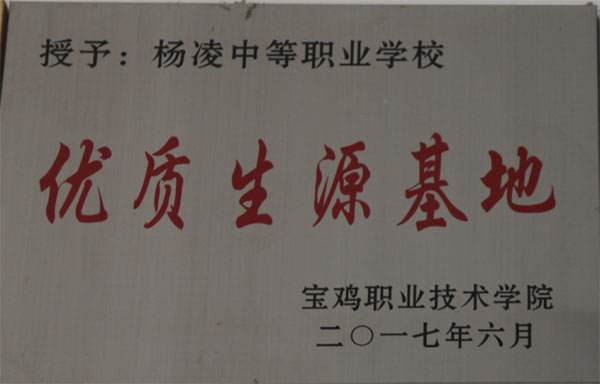 授予：杨凌中等职业学校
优质生源基地
宝鸡职业技术学院
二〇一七年六月